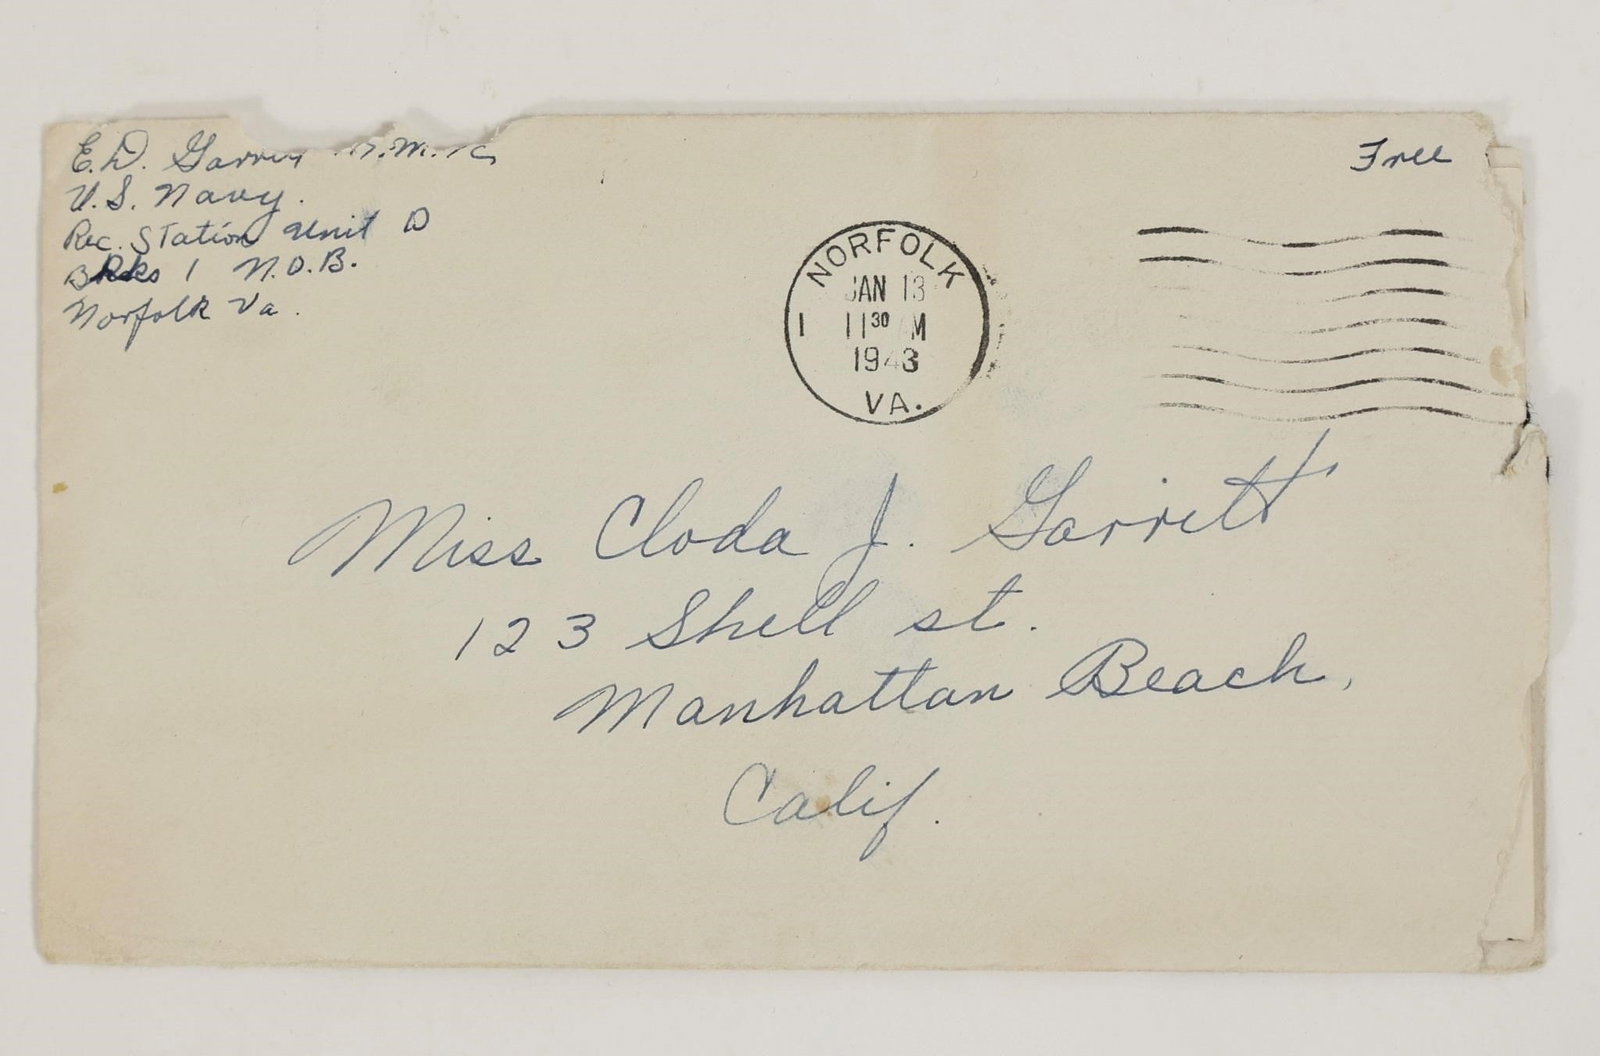 E.D. Garrett
U.S. Navy.
Rec. Station Unit D
BRks 1 N.O.B.
Norfolk Va.
Free
NORFOLK
JAN 13
1 11 30 AM
1943
VA.
Miss Cloda J. Garrett
123 Shell st.
Manhattan Beach,
Calif.